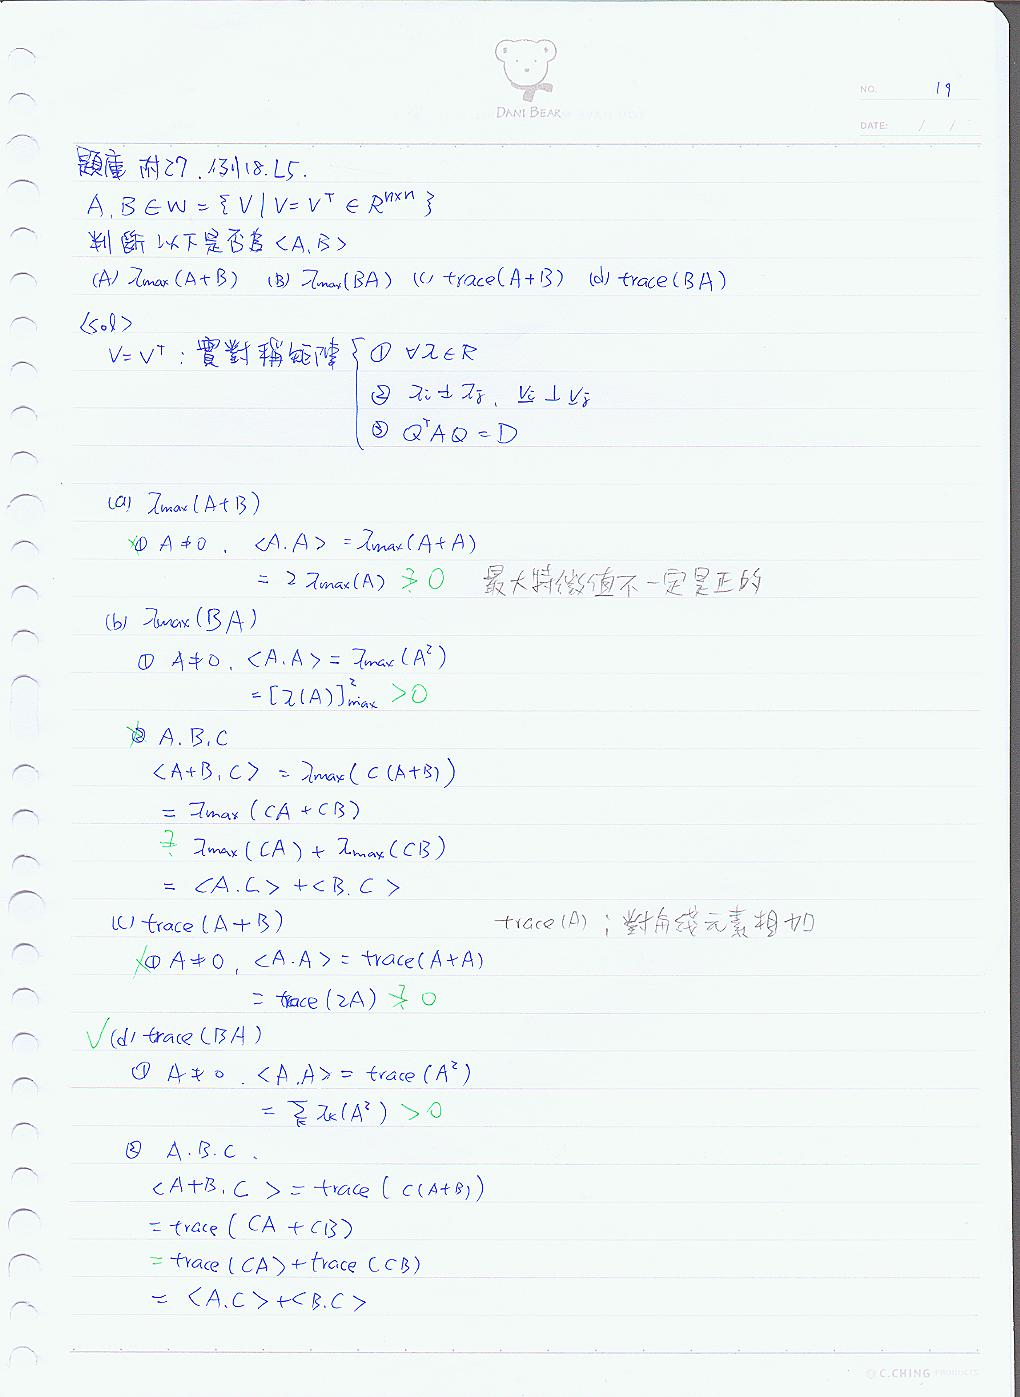 DANI BEAR
NO. 19
DATE: / /
題庫 附27.例18.L5.
A,B∈W={V|V=Vᵀ∈Rⁿˣⁿ}
判斷以下是否為<A,B>
(A) λmax(A+B) (B) λmax(BA) (c) trace(A+B) (d) trace(BA)
<sol>
V=Vᵀ:實對稱矩陣{① ∀λ∈R
② λi≠λj, vi⊥vj
③ QᵀAQ=D
(a) λmax(A+B)
×① A≠0, <A.A>=λmax(A+A)
=2λmax(A) ≯ 0 最大特徵值不一定是正的
(b) λmax(BA)
① A≠0, <A.A>=λmax(A²)
=[λ(A)]²max >0
×② A.B.C
<A+B,C>=λmax(C(A+B))
=λmax(CA+CB)
≠ λmax(CA)+λmax(CB)
=<A.C>+<B.C>
(c) trace(A+B) trace(A):對角線元素相加
×① A≠0, <A.A>=trace(A+A)
=trace(2A) ≯ 0
✓(d) trace(BA)
① A≠0. <A.A>=trace(A²)
=∑k λk(A²) >0
② A.B.C.
<A+B,C>=trace(C(A+B))
=trace(CA+CB)
=trace(CA)+trace(CB)
=<A.C>+<B.C>
C.CHING PRODUCTS